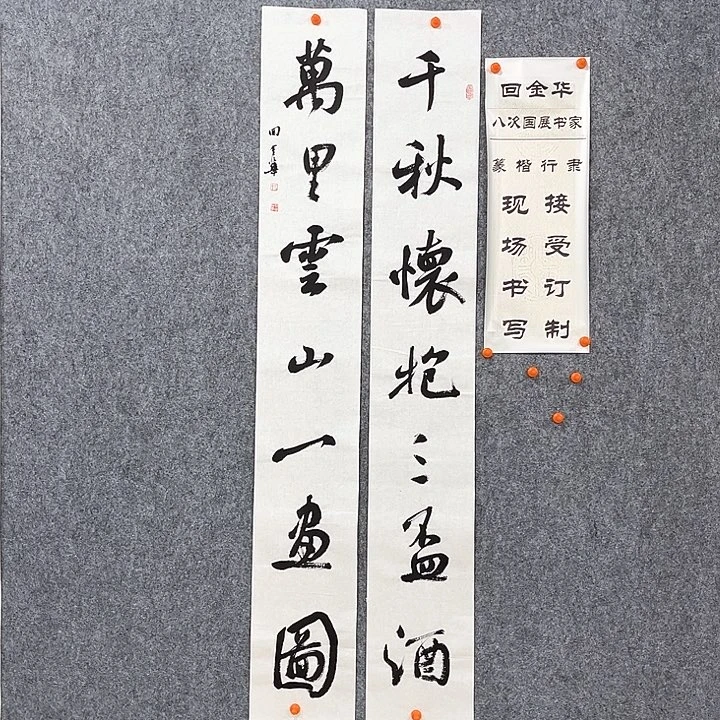 千秋懷抱三盃酒
萬里雲山一畫圖
回金華
回金华
八次国展书家
篆楷行隶
现场书写
接受订制